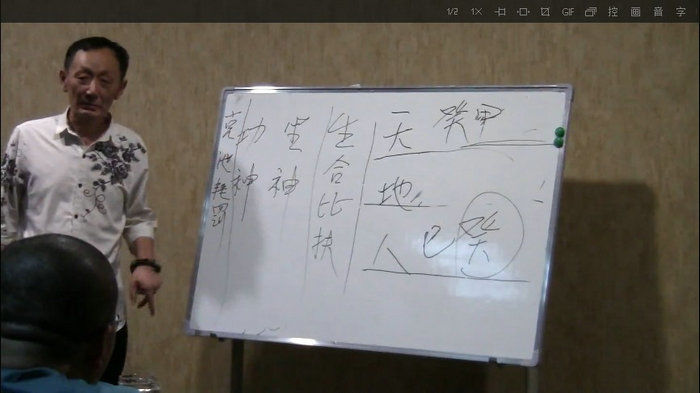 1/2 1× GIF 控 画 音 字
天 癸甲
地
人 己 癸
生合比扶
生神
动神
克泄耗